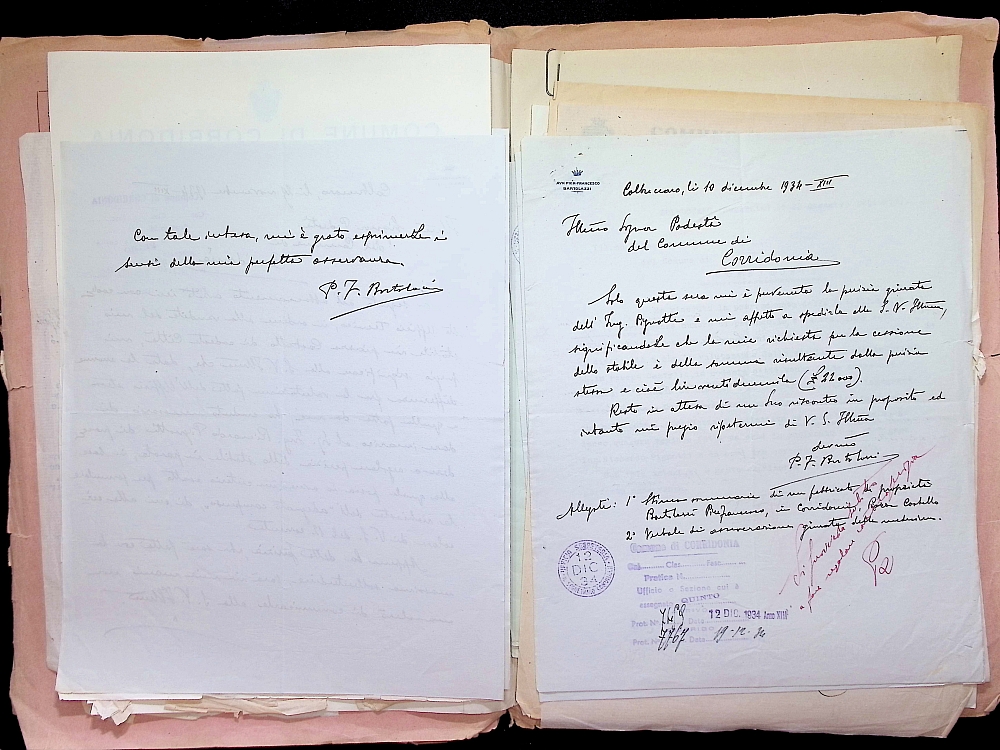 COMUNE DI CORRIDONIA
Con tale intesa, mi è grato esprimerle i
sensi della mia perfetta osservanza.
P. F. Bartolazzi
AVV. PIER FRANCESCO
BARTOLAZZI
li 10 dicembre 1934 - XIII
Ill.mo Signor Podestà
del Comune di
Corridonia
Solo questa sera mi è pervenuta la perizia giurata
dell'Ing. e mi affretto a spedirla alla S. V. Ill.ma,
significandole che la mia richiesta per la cessione
dello stabile è della somma risultante dalla perizia
stessa e cioè lire ventiduemila (£ 22000).
Resto in attesa di un Suo riscontro in proposito ed
intanto mi pregio ripetermi di V. S. Ill.ma
dev.mo
P. F. Bartolazzi
Allegati: 1° Stima sommaria di un fabbricato di proprietà
Bartolazzi in Corridonia, Castello
2° Verbale di asseverazione giurata della medesima.
12
DIC
34
Comune di CORRIDONIA
Cat. Clas. Fasc.
Pratica N.
Ufficio o Sezione cui è
assegnata QUINTO
Prot. N. 7469 Data 12 DIC. 1934 Anno XIII°
Prot. N. 7767 Data 19-12-34